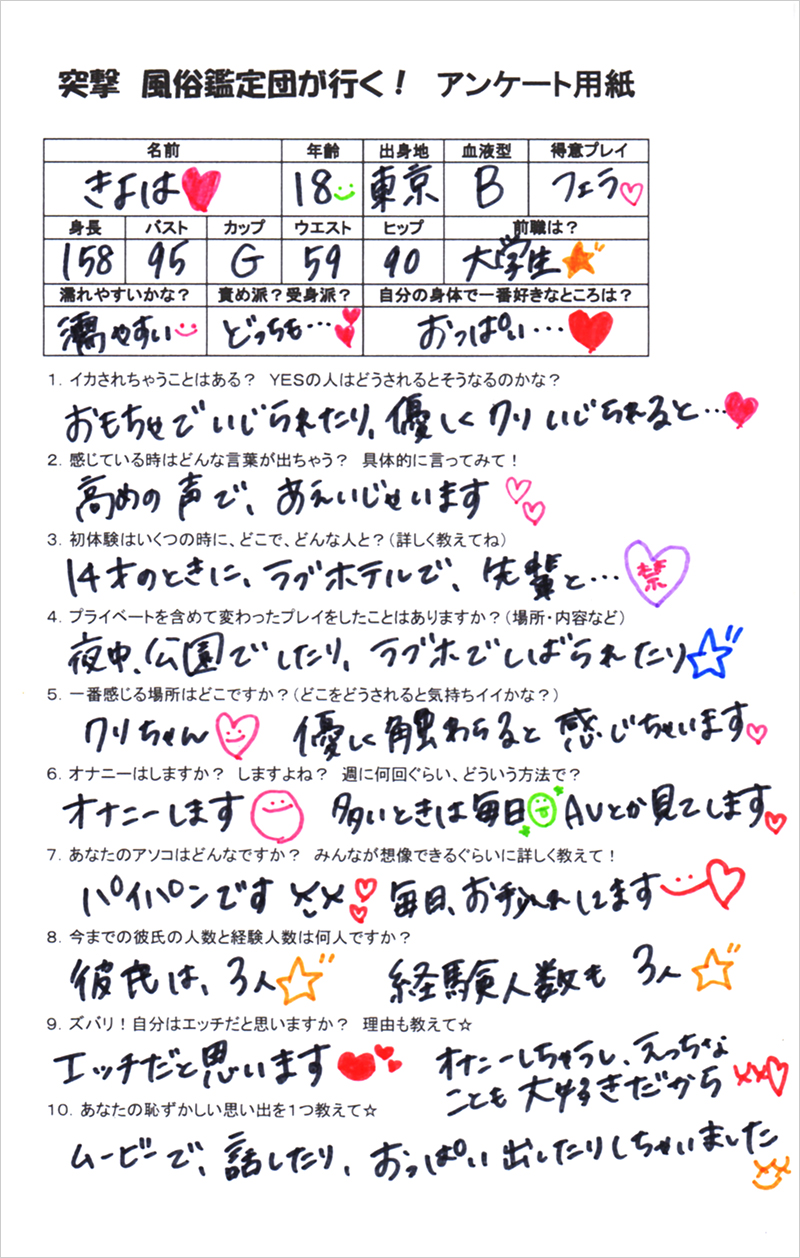 突撃 風俗鑑定団が行く! アンケート用紙
名前 年齢 出身地 血液型 得意プレイ
きよは 18 東京 B フェラ
身長 バスト カップ ウエスト ヒップ 前職は?
158 95 G 59 90 大学生
濡れやすいかな? 責め派?受身派? 自分の身体で一番好きなところは?
濡やすい どっちも… おっぱい…
1. イカされちゃうことはある? YESの人はどうされるとそうなるのかな?
おもちゃでいじられたり、優しくクリいじられると…
2. 感じている時はどんな言葉が出ちゃう? 具体的に言ってみて!
高めの声で、あえいじゃいます
4. プライベートを含めて変わったプレイをしたことはありますか?(場所・内容など)
夜中、公園でしたり、ラブホでしばられたり
5. 一番感じる場所はどこですか?(どこをどうされると気持ちイイかな?)
クリちゃん 優しく触わられると感じちゃいます
6. オナニーはしますか? しますよね? 週に何回ぐらい、どういう方法で?
オナニーします 多いときは毎日 AVとか見てします
7. あなたのアソコはどんなですか? みんなが想像できるぐらいに詳しく教えて!
パイパンです 毎日、お手入れしてます
8. 今までの彼氏の人数と経験人数は何人ですか?
彼氏は、3人 経験人数も 3人
9. ズバリ!自分はエッチだと思いますか? 理由も教えて☆
エッチだと思います オナニーしちゃうし、えっちな
ことも大好きだから
10. あなたの恥ずかしい思い出を1つ教えて☆
ムービーで、話したり、おっぱい出したりしちゃいました